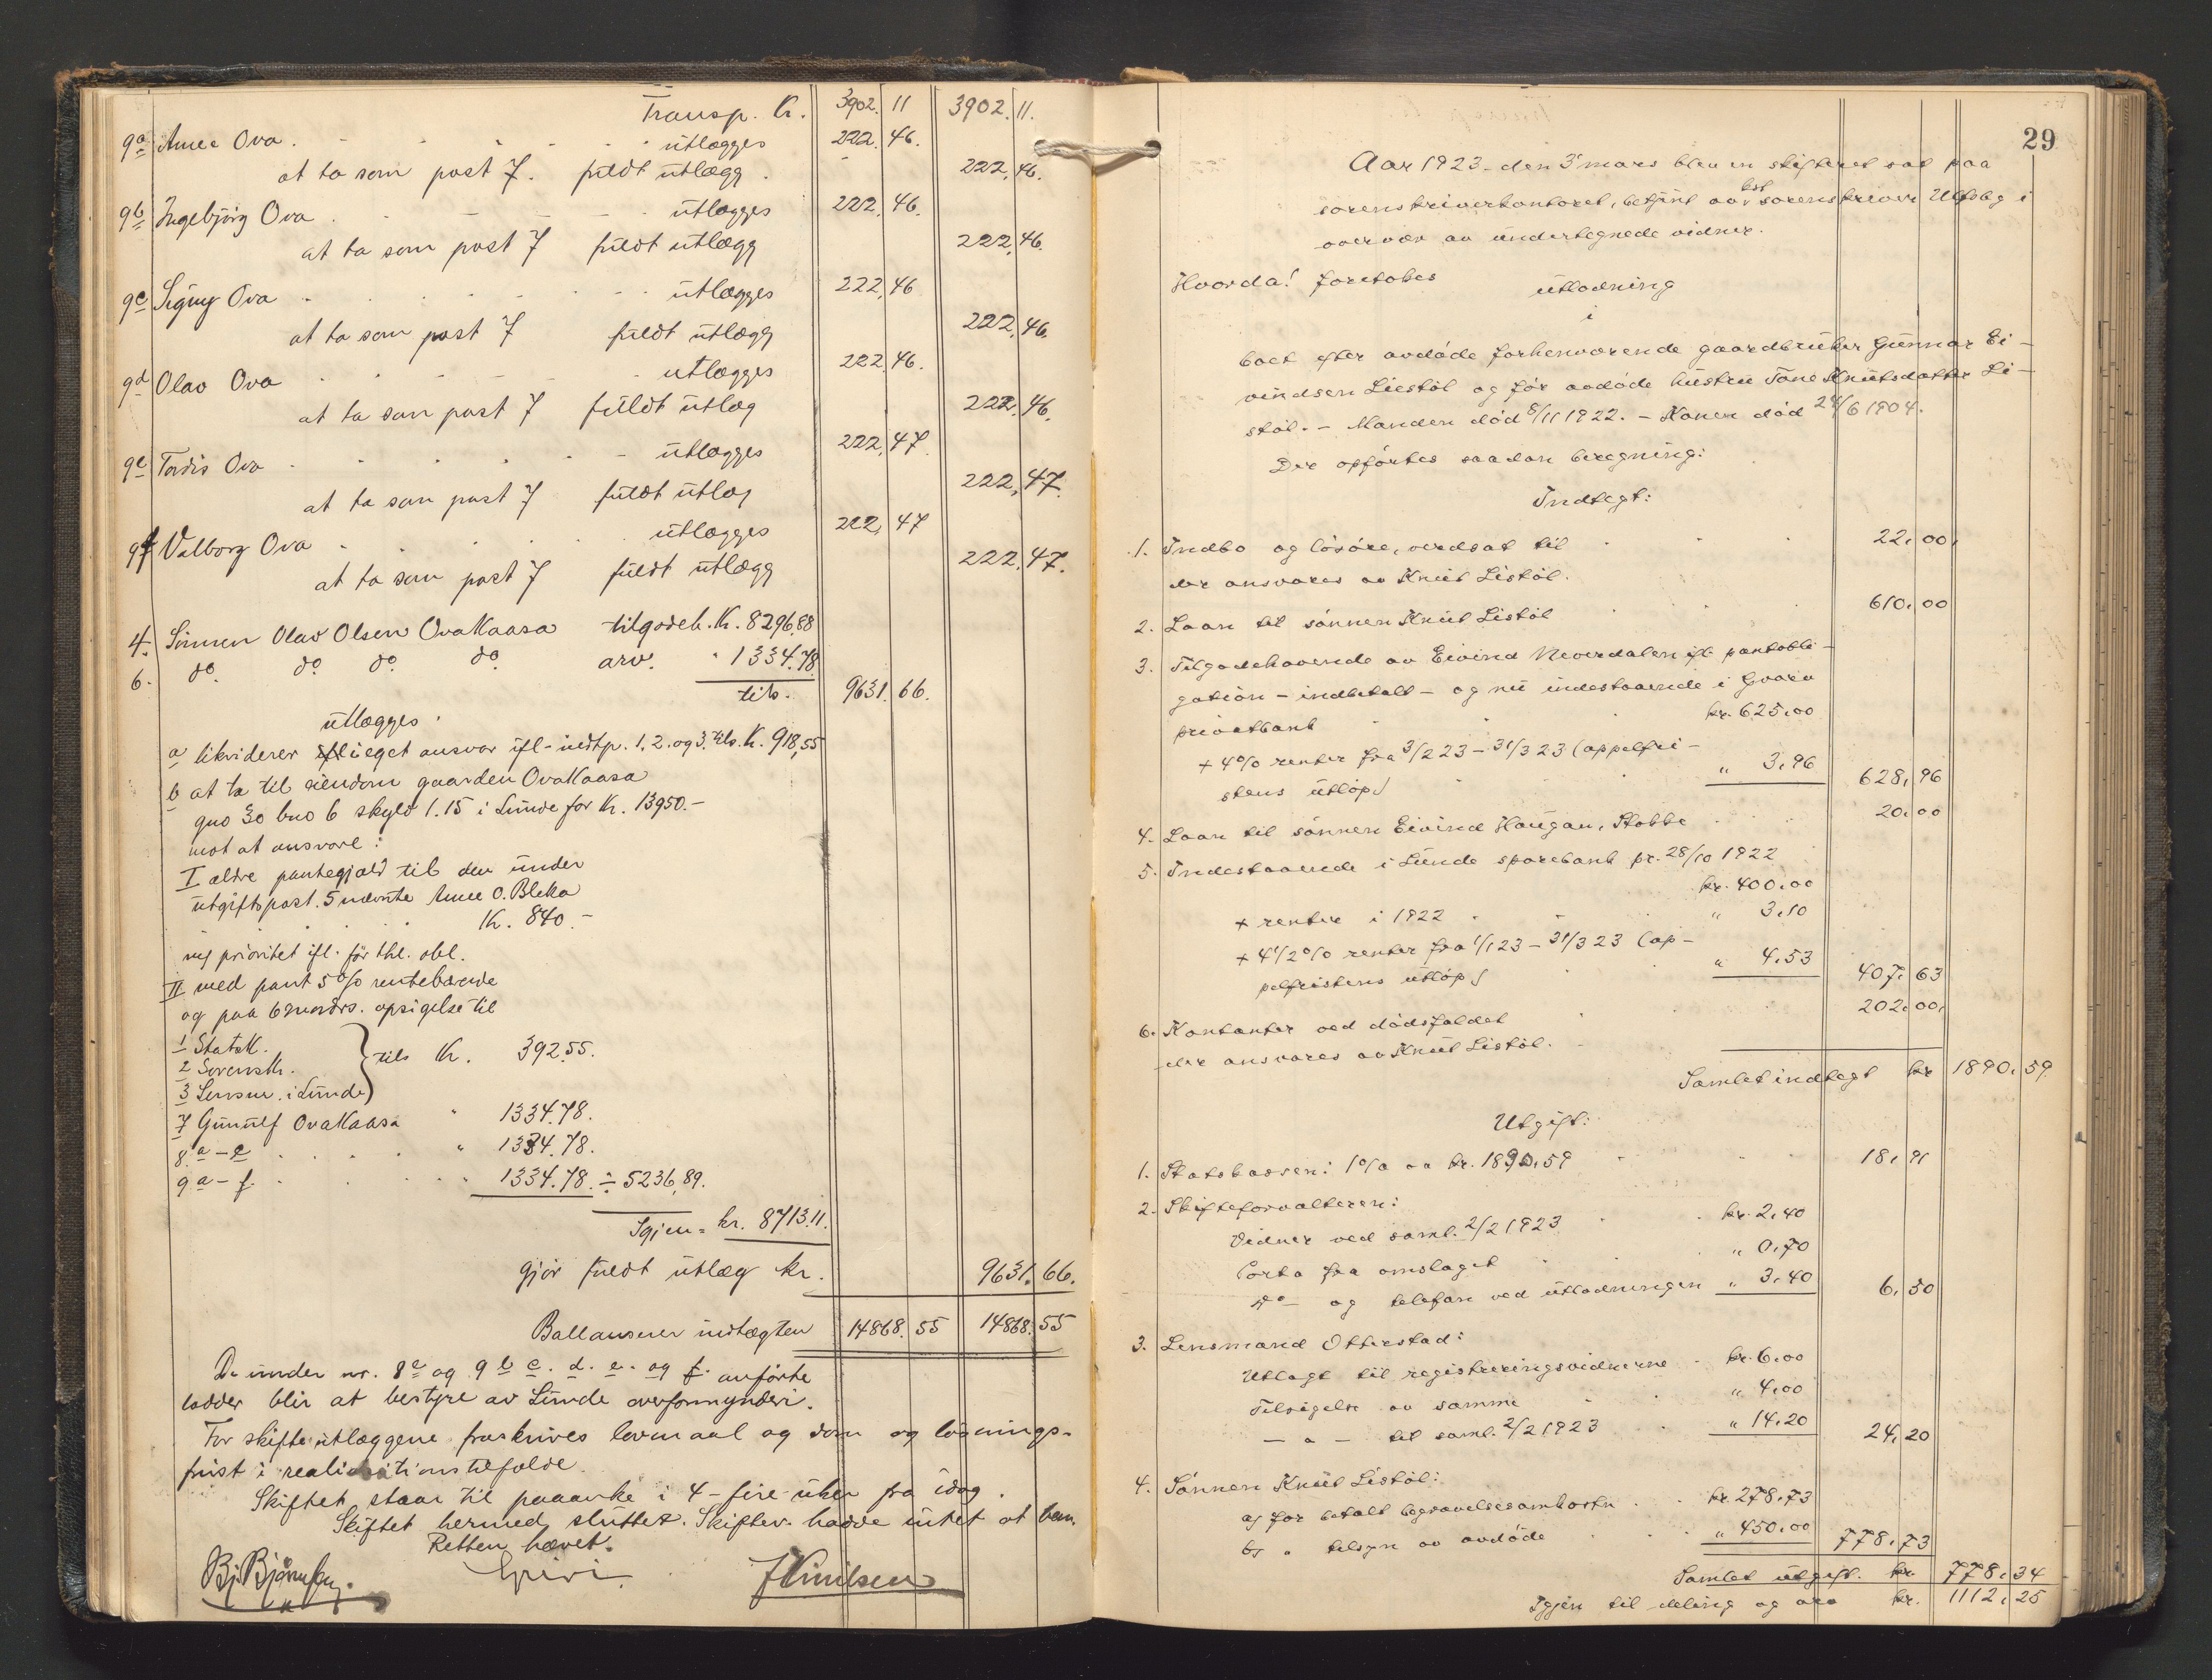 Transp. Kr. 3902.11 3902.11.
9a Anne Ova . . . . . utlægges 222.46.
at ta som post 7. fuldt utlægg . 222.46.
9b Ingebjörg Ova . . . . utlægges 222.46.
at ta som post 7 fuldt utlægg 222.46.
9c Signy Ova . . . . utlægges 222.46
at ta som post 7 fuldt utlægg 222.46.
9d Olav Ova . . . . utlægges 222.46.
at ta som post 7 fuldt utlæg 222.46.
9e Tordis Ova . . . . utlægges 222.47.
at ta som post 7 fuldt utlæg 222.47.
9f Valborg Ova . . . . utlægges 222.47
at ta som post 7 fuldt utlægg 222.47.
4. Sönnen Olav Olsen Ovakaasa tilgodeh. Kr. 8296.88
6. do. do. do. do. arv. " 1334.78
tils. 9631.66.
utlægges.
a likviderer i eget ansvar ifl. indtp. 1.2. og 3. tils. Kr. 918,55
b at ta til eiendom gaarden Ovakaasa
gno 30 bno 6 skyld 1.15 i Lunde for Kr. 13950.-
mot at ansvare:
I ældre pantegjæld til den under
utgiftspost. 5 nævnte Anne O. Bleka
. . . . Kr. 840.-
m/ prioritet ifl. för thl. obl.
II med pant 5% rentebærende
og paa 6 mndrs. opsigelse til
1 Statsk.
2 Sorenskr. tils Kr. 392.55.
3 Lensm. i Lunde
7 Gunulf Ovakaasa " 1334.78.
8. a-e . . . . " 1334.78.
9 a-f. . . . . " 1334.78. ÷ 5236,89.
Igjen = kr. 8713.11.
gjör fuldt utlæg kr. 9631.66.
Ballanserer indtægten 14868.55 14868.55
De under nr. 8e og 9 b c. d. e. og f. anförte
lodder blir at bestyre av Lunde overformynderi.
For skifteutlæggene fraskrives lovmaal og dom og lösnings-
frist i realisationstilfælde.
Skiftet staar til paaanke i 4 - fire uker fra idag.
Skiftet hermed sluttet. Skifterv. hadde intet at bem.
Retten hævet.
Bj. Björnsen. JKnudsen
29
Aar 1923 den 3 mars blev en skifteret sat paa
sorenskriverkontoret, betjent av kst. sorenskriver Ulfsby i
overvær av undertegnede vidner.
Hvorda! foretokes utlodning
i
boet efter avdöde forhenværende gaardbruker Gunnar Ei-
vindsen Liestöl og för avdöde hustru Tone Knutsdatter Li-
stöl. - Manden död 8/11 1922. - Konen död 24/6 1904.
Der opförtes saadan beregning:
Indtægt:
1. Indbo og lösöre, verdsat til . . . 22.00.
der ansvares av Knut Listöl.
2. Laan til sönnen Knut Listöl . . . 610.00
3. Tilgodehavende av Eivind Neverdalen ifl. pantobli-
gation - indbetalt - og nu indestaaende i Gvarv
privatbank . . . kr. 625.00
+ 4% renter fra 3/2 23 - 31/3 23 (appelfri-
stens utlöp) . . " 3.96 628.96
4. Laan til sönnen Eivind Haugan, Stokke . . . 20.00
5. Indestaaende i Lunde sparebank pr. 28/10 1922
kr. 400.00
+ renter i 1922 . . " 3.10
+ 4 1/2% renter fra 1/1 23 - 31/3 23 (ap-
pelfristens utlöp) . . " 4.53 407.63
6. Kontanter ved dödsfaldet . . . 202.00.
der ansvares av Knut Listöl.
Samlet indtægt kr 1890.59.
Utgift:
1. Statskassen: 1% av kr. 1890.59 . . . 18.91
2. Skifteforvalteren:
Vidner ved saml. 2/2 1923 . . kr. 2.40
Porto fra omslaget . . " 0.70
do - og telefon ved utlodningen " 3.40 6.50
3. Lensmand Otterstad:
Utlagt til registreringsvidnerne . kr. 6.00
Tilsigelse av samme . " 4.00
- " - til saml. 2/2 1923 . . " 14.20 24.20
4. Sönnen Knut Listöl:
a) for betalt begravelsesomkostn . . kr. 278.73
b) " tilsyn av avdöde . . . " 450.00 778.73
Samlet utgift. kr. 778.34
Igjen til deling og arv kr. 1112.25